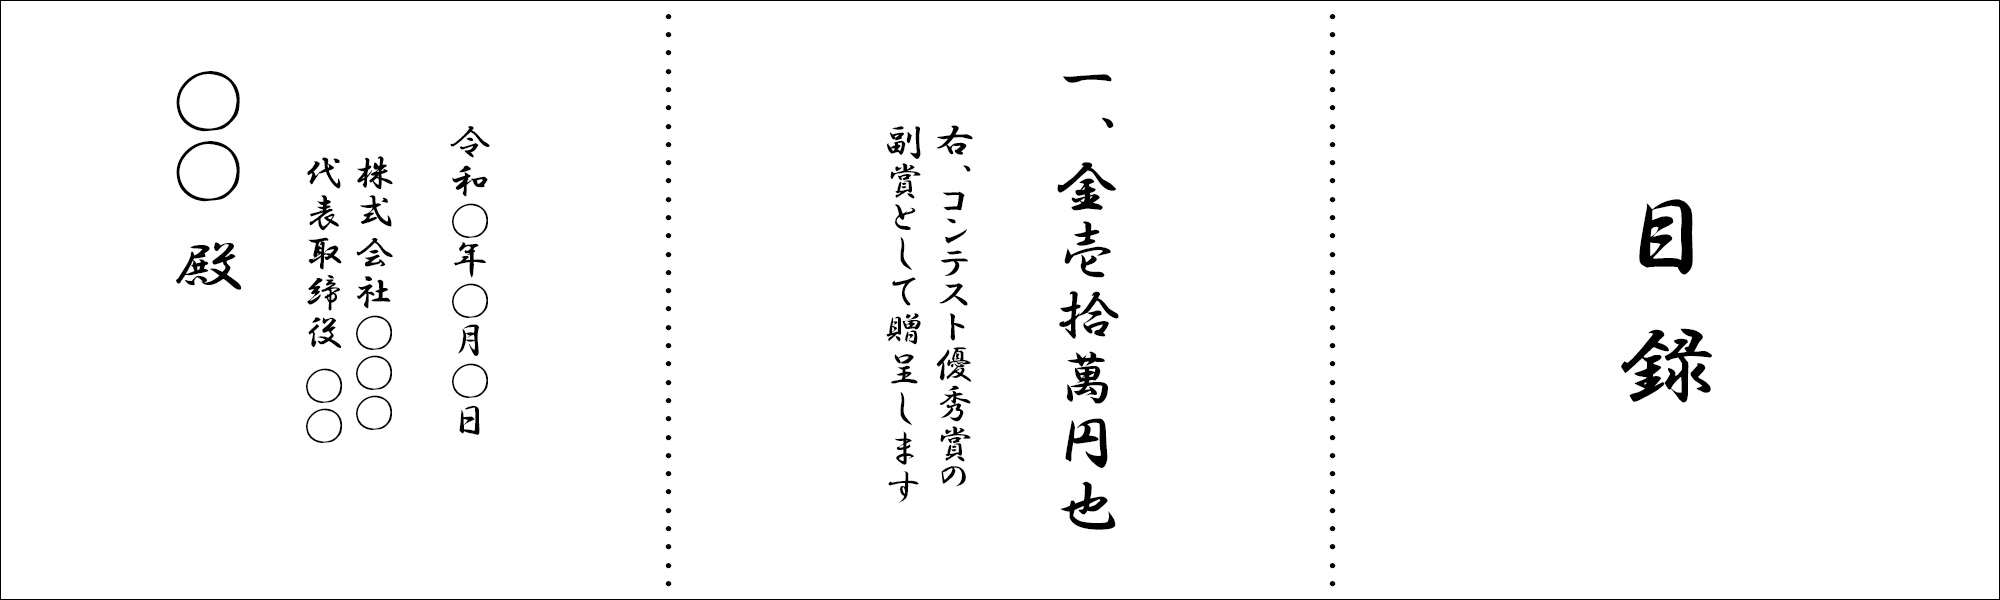 目録
一、金壱拾萬円也
右、コンテスト優秀賞の
副賞として贈呈します
令和〇年〇月〇日
株式会社〇〇〇
代表取締役 〇〇
〇〇 殿